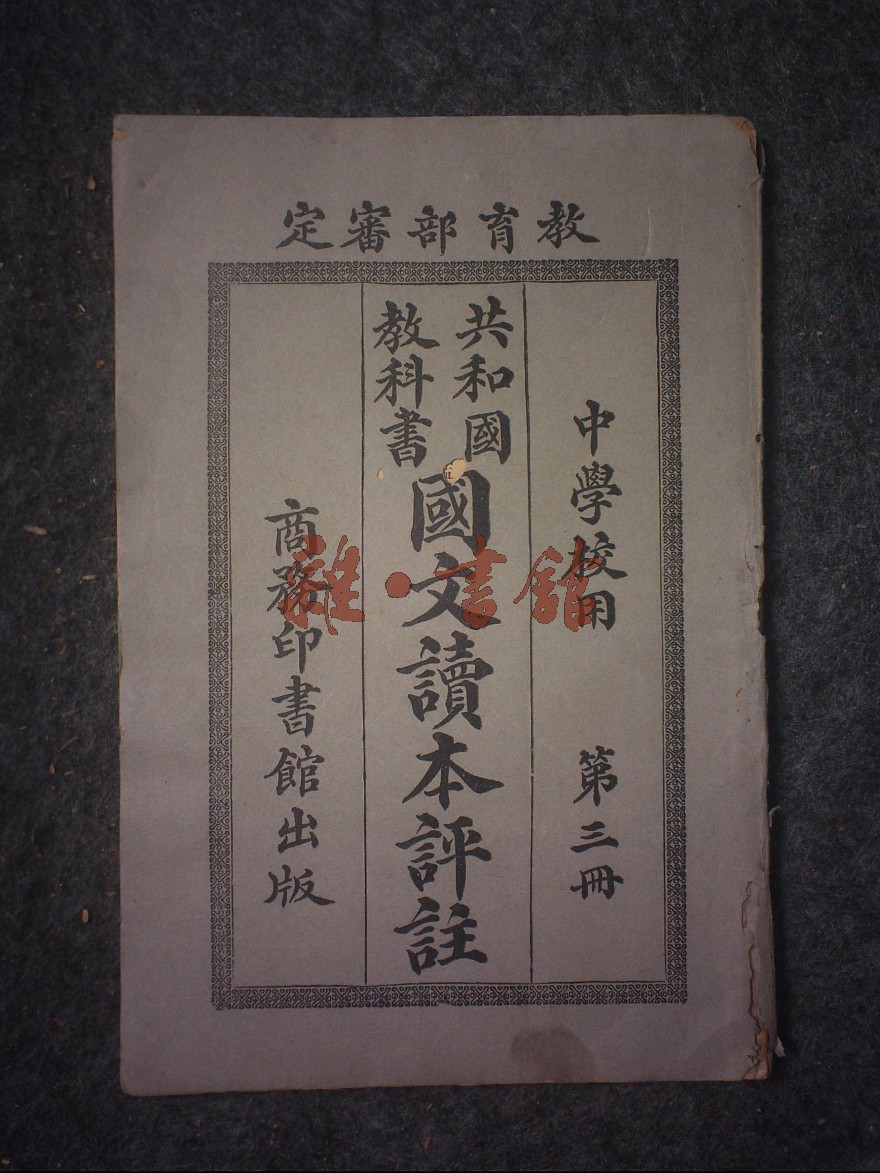 教育部審定
中學校用 第三冊
共和國
教科書
國文讀本評註
商務印書館出版
雜·書館